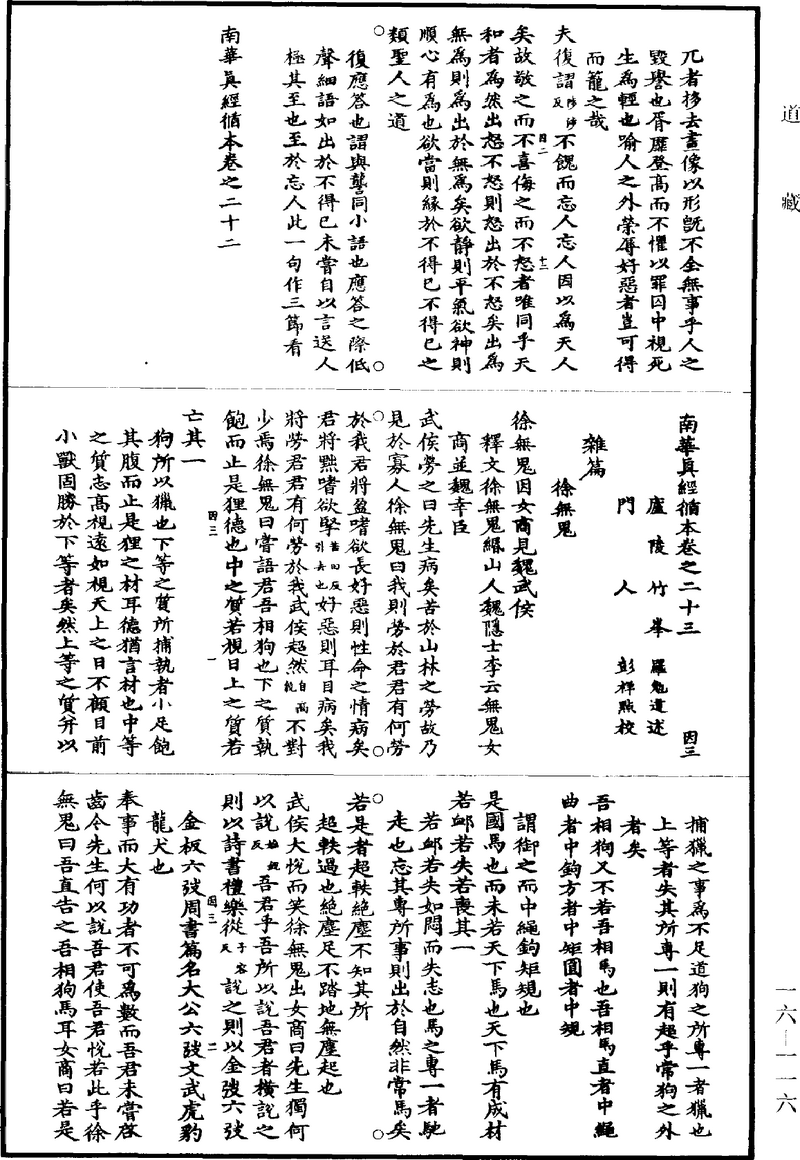 道藏
兀者移去畫像以形旣不全無事乎人之
毀譽也胥靡登高而不懼以罪囚中視死
生為輕也喻人之外榮辱好惡者豈可得
而籠之哉
夫復謵反不餽而忘人忘人因以為天人
矣故敬之而不喜侮之而不怒者唯同乎天
和者為然出怒不怒則怒出於不怒矣出為
無為則為出於無為矣欲靜則平氣欲神則
順心有為也欲當則緣於不得已不得已之
類聖人之道
復應答也謂與讋同小語也應答之際低
聲細語如出於不得已未嘗自以言送人
極其至也至於忘人此一句作三節看
南華真經循本卷之二十二
南華真經循本卷之二十三 因三
廬陵竹峯 羅勉道述
門人 彭祥點校
雜篇
徐無鬼
徐無鬼因女商見魏武侯
釋文徐無鬼緡山人魏隱士李云無鬼女
商並魏幸臣
武侯勞之曰先生病矣苦於山林之勞故乃
見於寡人徐無鬼曰我則勞於君君有何勞
於我君將盈嗜欲長好惡則性命之情病矣
君將黜嗜欲掔苦田反引去也好惡則耳目病矣我
將勞君君有何勞於我武侯超然不對
少焉徐無鬼曰嘗語君吾相狗也下之質執
飽而止是狸德也中之質若視日上之質若
亡其一
狗所以獵也下等之質所捕執者小足飽
其腹而止是狸之材耳德猶言材也中等
之質志高視遠如視天上之日不顧目前
小獸固勝於下等者矣然上等之質并以
捕獵之事為不足道狗之所專一者獵也
上等者失其所專一則有超乎常狗之外
者矣
吾相狗又不若吾相馬也吾相馬直者中繩
曲者中鉤方者中矩圓者中規
謂御之而中繩鉤矩規也
是國馬也而未若天下馬也天下馬有成材
若卹若失若喪其一
若卹若失如悶而失志也馬之專一者馳
走也忘其專所事則出於自然非常馬矣
若是者超軼絕塵不知其所
超軼過也絕塵足不踏地無塵起也
武侯大悅而笑徐無鬼出女商曰先生獨何
以說始銳反吾君乎吾所以說吾君者橫說之
則以詩書禮樂從子容反說之則以金弢六弢
金板六弢周書篇名大公六弢文武虎豹
龍犬也
奉事而大有功者不可為數而吾君未嘗啓
齒今先生何以說吾君使吾君悅若此乎徐
無鬼曰吾直告之吾相狗馬耳女商曰若是
一六—一一六